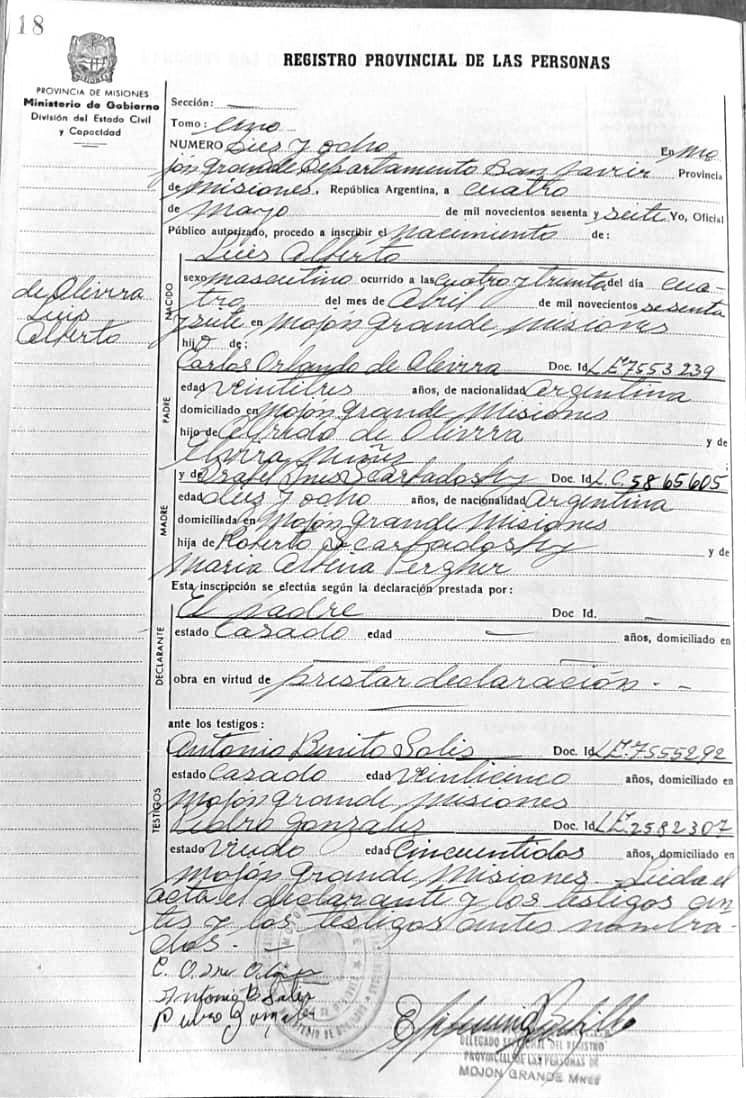 18
REGISTRO PROVINCIAL DE LAS PERSONAS
PROVINCIA DE MISIONES
Ministerio de Gobierno
División del Estado Civil
y Capacidad
Sección:
Tomo: uno
NUMERO Diez y ocho En Mo
jón Grande Departamento San Javier Provincia
de Misiones. República Argentina, a cuatro
de Mayo de mil novecientos sesenta y seite Yo, Oficial
Público autorizado, procedo a inscribir el nacimiento de:
Luis Alberto
de Olivera
Luis
Alberto
NACIDO
sexo masculino ocurrido a las cuatro y treinta del día cua-
tro del mes de Abril de mil novecientos sesenta
y siete en Mojón Grande Misiones
hijo de:
PADRE
Carlos Orlando de Olivera Doc. Id. L.E. 7553239
edad veintitres años, de nacionalidad Argentina
domiciliado en Mojón Grande Misiones
hijo de Alfredo de Olivera y de
Elvira Núñez
MADRE
y de Inés Scarfadosky Doc. Id. L.C. 5865605
edad diez y ocho años, de nacionalidad Argentina
domiciliada en Mojón Grande Misiones
hija de Roberto Scarfadosky y de
María Albina Pergher
Esta inscripción se efectúa según la declaración prestada por:
DECLARANTE
El padre Doc Id.
estado Casado edad — años, domiciliado en
obra en virtud de prestar declaración. -
ante los testigos:
TESTIGOS
Antonio Benito Solis Doc. Id. L.E. 7555292
estado Casado edad veinticinco años, domiciliado en
Mojón Grande Misiones
Pedro Gonzalez Doc. Id. L.E. 2582307
estado Viudo edad Cincuentidos años, domiciliado en
Mojón Grande, Misiones - Leida el
acta el declarante y los testigos an-
tes y los testigos antes nombra-
dos. -
C. O. de
Antonio B. Solis
Pedro Gonzalez
DELEGADO SECCIONAL DEL REGISTRO
PROVINCIAL DE LAS PERSONAS DE
MOJON GRANDE Mnes